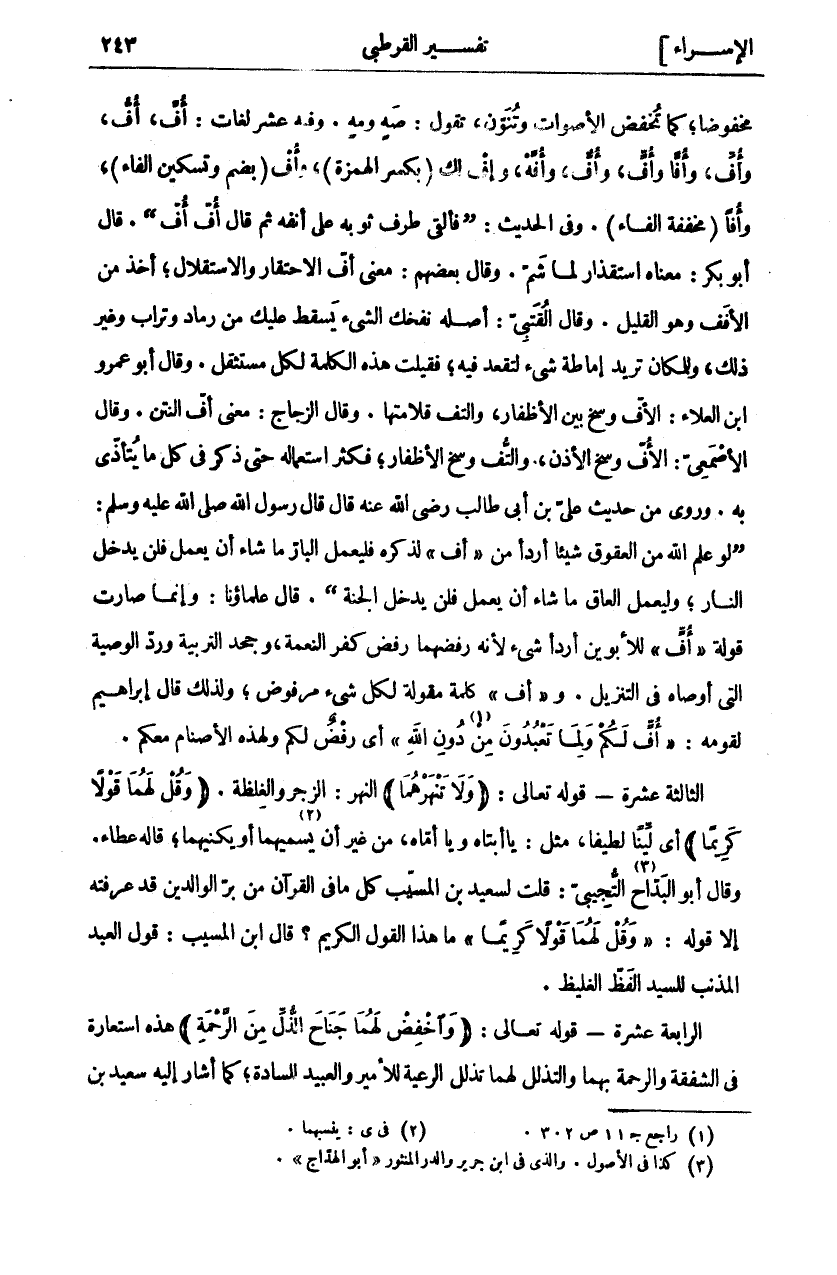 الإســراء] تفســير القرطبي ٢٤٣
مخفوضا؛ كما تُخفض الأصوات وتُنَوَّن، تقول : صَهٍ ومهٍ . وفيه عشر لغات : أُفَّ، أُفُّ،
وأُفِّ، وأُفًّا وأُفٍّ، وأُفٌّ، وأُفَّهْ، وإفّ لك (بكسر الهمزة)، وأُفْ (بضم وتسكين الفاء)،
وأُفًا (مخففة الفــاء) . وفى الحديث : ”فألقى طرف ثوبه على أنفه ثم قال أُفّ أُفّ“ . قال
أبو بكر : معناه استقذار لمــا شَمّ . وقال بعضهم : معنى أفّ الاحتقار والاستقلال؛ أخذ من
الأفَف وهو القليل . وقال القُتَبِيّ : أصــله نفخك الشىء يَسقط عليك من رماد وتراب وغير
ذلك، وللمكان تريد إماطة شىء لتقعد فيه؛ فقيلت هذه الكلمة لكل مستثقل . وقال أبو عمرو
ابن العلاء : الأفّ وسخ بين الأظفار، والتف قلامتها . وقال الزجاج : معنى أفّ النتن . وقال
الأصْمَعِيّ : الأُفّ وسخ الأذن، والتُّف وسخ الأظفار؛ فكثر استعماله حتى ذكر فى كل ما يُتأذّى
به . وروى من حديث علىّ بن أبى طالب رضى الله عنه قال قال رسول الله صلى الله عليه وسلم :
”لو علم الله من العقوق شيئا أردأ من « أف » لذكره فليعمل البارّ ما شاء أن يعمل فلن يدخل
النــار ؛ وليعمل العاق ما شاء أن يعمل فلن يدخل الجنة “ . قال علماؤنا : وإنمــا صارت
قولة « أُفٍّ » للأبوين أردأ شىء لأنه رفضهما رفض كفر النعمة، وجحد التربية وردّ الوصية
التى أوصاه فى التنزيل . و « أف » كلمة مقولة لكل شىء مرفوض ؛ ولذلك قال إبراهيــم
لقومه : « أُفٍّ لَكُمْ وَلِمَــا تَعْبُدُونَ مِنْ (١) دُونِ اللهِ » أى رفْضٌ لكم ولهذه الأصنام معكم .
الثالثة عشرة — قوله تعالى : ﴿وَلَا تَنْهَرْهُمَا﴾ النهر : الزجر والغلظة . ﴿وَقُلْ لَهُمَا قَوْلًا
كَرِيمًا﴾ أى لَيِّنًا لطيفا، مثل : يا أبتاه ويا أمّاه، من غير أن يسميهما (٢) أو يكنيهما؛ قاله عطاء.
وقال أبو البَدّاح (٣) التُّجِيبِىّ : قلت لسعيد بن المسيِّب كل ما فى القرآن من برّ الوالدين قد عرفته
إلا قوله : « وَقُلْ لَهُمَا قَوْلًا كَرِيمًــا » ما هذا القول الكريم ؟ قال ابن المسيب : قول العبد
المذنب للسيد الفَظّ الغليظ .
الرابعة عشرة — قوله تعــالى : ﴿وَٱخْفِضْ لَهُمَا جَنَاحَ الذُّلِّ مِنَ الرَّحْمَةِ﴾ هذه استعارة
فى الشفقة والرحمة بهما والتذلل لهما تذلل الرعية للأمير والعبيد للسادة؛ كما أشار إليه سعيد بن
(١) راجع جـ ١١ ص ٣٠٢ . (٢) فى ى : ينسبهما .
(٣) كذا فى الأصول . والذى فى ابن جرير والدر المنثور « أبو الهدّاج » .